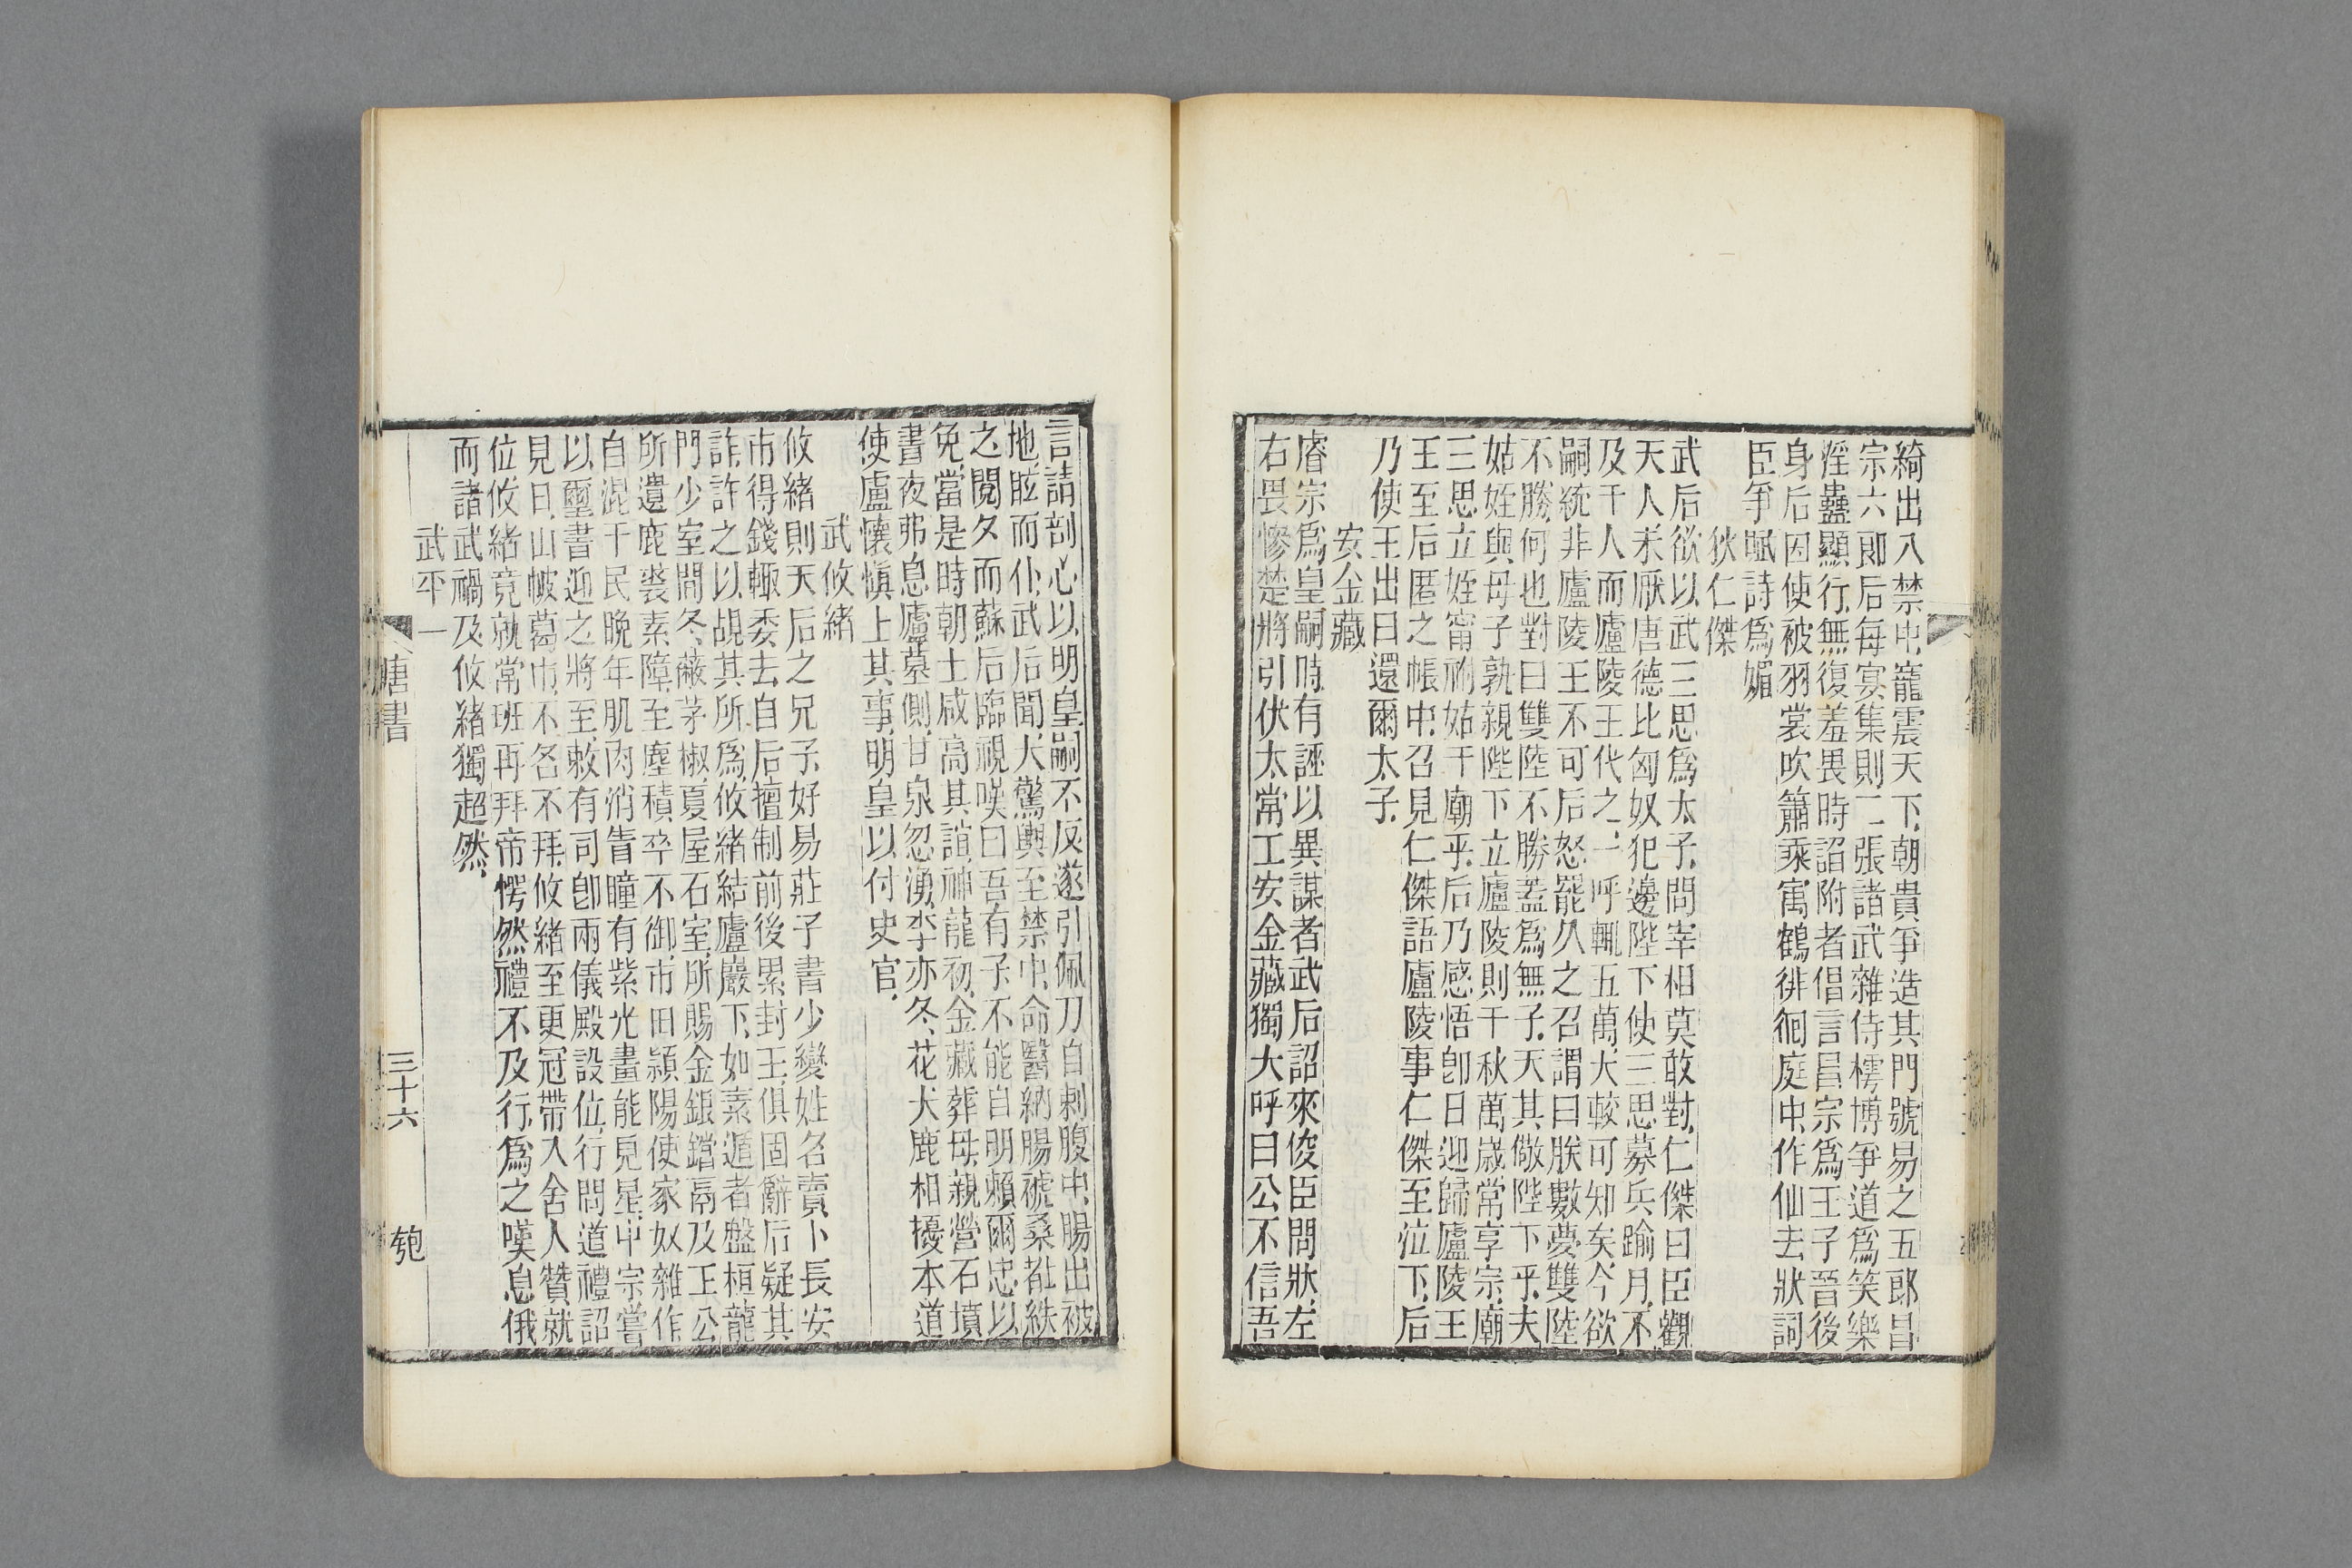 綺出入禁中、寵震天下、朝貴爭造其門、號易之五郎、昌
宗六郎、后每宴集、則二張諸武雜侍、樗博爭道爲笑樂
淫蠱顯行、無復羞畏、時詔附者倡言昌宗爲王子晉後
身、后因使被羽裳、吹簫、乘寓鶴、徘徊庭中、作仙去狀、詞
臣爭賦詩爲媚
狄仁傑
武后欲以武三思爲太子、問宰相、莫敢對、仁傑曰、臣觀
天人未厭唐德、比匈奴犯邊、陛下使三思募兵、踰月、不
及千人、而廬陵王代之、一呼輒五萬、大較可知矣、今欲
嗣統、非廬陵王不可、后怒、罷、久之、召謂曰、朕數夢雙陸
不勝、何也、對曰、雙陸不勝、蓋爲無子、天其儆陛下乎、夫
姑姪與母子孰親、陛下立廬陵、則千秋萬歲常享宗廟
三思立、姪甯祔姑于廟乎、后乃感悟、卽日迎歸廬陵王
王至、后匿之帳中、召見仁傑、語廬陵事、仁傑至泣下、后
乃使王出曰、還爾太子、
安金藏
睿宗爲皇嗣時、有誣以異謀者、武后詔來俊臣問狀、左
右畏慘楚、將引伏、太常工安金藏獨大呼曰、公不信吾
言、請剖心以明皇嗣不反、遂引佩刀自剚腹中、腸出被
地、眩而仆、武后聞、大驚、輿至禁中、命醫納腸、褫桑䊷紩
之、閱夕而蘇、后臨視、嘆曰、吾有子、不能自明、賴爾忠、以
免、當是時、朝士咸高其誼、神龍初、金藏葬母、親營石墳
晝夜弗息、廬墓側、甘泉忽湧、李亦冬、花、犬鹿相擾、本道
使盧懷慎上其事、明皇以付史官、
武攸緒
攸緒、則天后之兄子、好易莊子書、少變姓名、賣卜長安
市、得錢輒委去、自后擅制、前後累封王、俱固辭、后疑其
詐、許之、以覘其所爲、攸緒結廬巖下、如素遁者、盤桓龍
門少室間、冬、蔽茅椒、夏、屋石室、所賜金銀鐺鬲及王公
所遺鹿裘素障、至塵積卒不御、市田潁陽、使家奴雜作
自混于民、晩年肌肉消眚、瞳有紫光、晝能見星、中宗嘗
以璽書迎之、將至、敕有司卽兩儀殿設位、行問道禮、詔
見日、山帔葛巾、不名不拜、攸緒至、更冠帶入、舍人贊、就
位、攸緒竟就常班、再拜、帝愕然、禮不及行、爲之嘆息、俄
而諸武禍及、攸緒獨超然、
武平一
唐書
三十六
匏